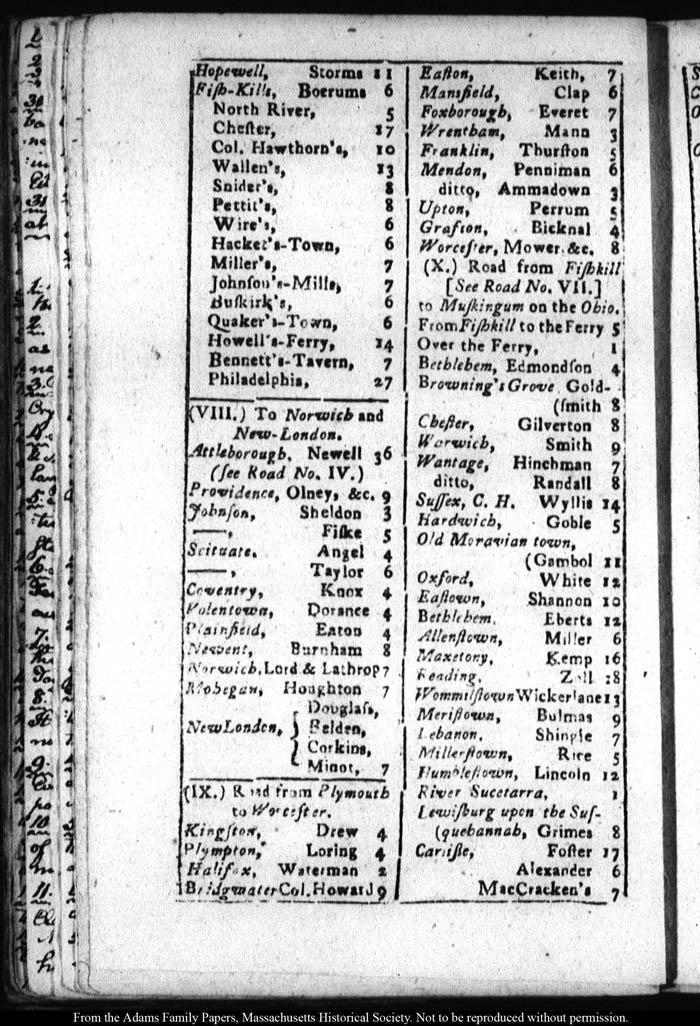 Hopewell, Storms 11
Fiſh-Kills, Boerums 6
North River, 5
Cheſter, 17
Col. Hawthorn's, 10
Wallen's, 13
Snider's, 8
Pettit's, 8
Wire's, 6
Hacket's-Town, 6
Miller's, 7
Johnſon's-Mills, 7
Buſkirk's, 6
Quaker's-Town, 6
Howell's-Ferry, 14
Bennett's-Tavern, 7
Philadelphia, 27
(VIII.) To Norwich and
New-London.
Attleborough, Newell 36
(ſee Road No. IV.)
Providence, Olney, &c. 9
Johnſon, Sheldon 3
——, Fiſke 5
Scituate, Angel 4
——, Taylor 6
Coventry, Knox 4
Volentown, Dorance 4
Plainfield, Eaton 4
Newent, Burnham 8
Norwich, Lord & Lathrop 7
Mohegan, Houghton 7
Douglaſs,
New London, } Belden,
Corkins,
Minot, 7
(IX.) Road from Plymouth
to Worceſter.
Kingſton, Drew 4
Plympton, Loring 4
Halifax, Waterman 2
Bridgwater Col. Howard 9
Eaſton, Keith, 7
Mansfield, Clap 6
Foxborough, Everet 7
Wrentham, Mann 3
Franklin, Thurſton 5
Mendon, Penniman 6
ditto, Ammadown 3
Upton, Perrum 5
Grafton, Bicknal 4
Worceſter, Mower, &c. 8
(X.) Road from Fiſhkill
[See Road No. VII.]
to Muſkingum on the Ohio.
From Fiſhkill to the Ferry 5
Over the Ferry, 1
Bethlehem, Edmondſon 4
Browning's Grove, Gold-
(ſmith 8
Cheſter, Gilverton 8
Warwich, Smith 9
Wantage, Hinchman 7
ditto, Randall 8
Suſſex, C. H. Wyllis 14
Hardwich, Goble 5
Old Moravian town,
(Gambol 11
Oxford, White 12
Eaſtown, Shannon 10
Bethlehem, Eberts 12
Allenſtown, Miller 6
Maxetony, Kemp 16
Reading, Zoll 18
Wommilſtown Wickerlane 13
Meriſtown, Bulmas 9
Lebanon, Shingle 7
Millerſtown, Rice 5
Humbleſtown, Lincoln 12
River Sucetarra, 1
Lewiſburg upon the Suſ-
(quehannah, Grimes 8
Carliſle, Foſter 17
Alexander 6
MacCracken's 7
From the Adams Family Papers, Massachusetts Historical Society. Not to be reproduced without permission.